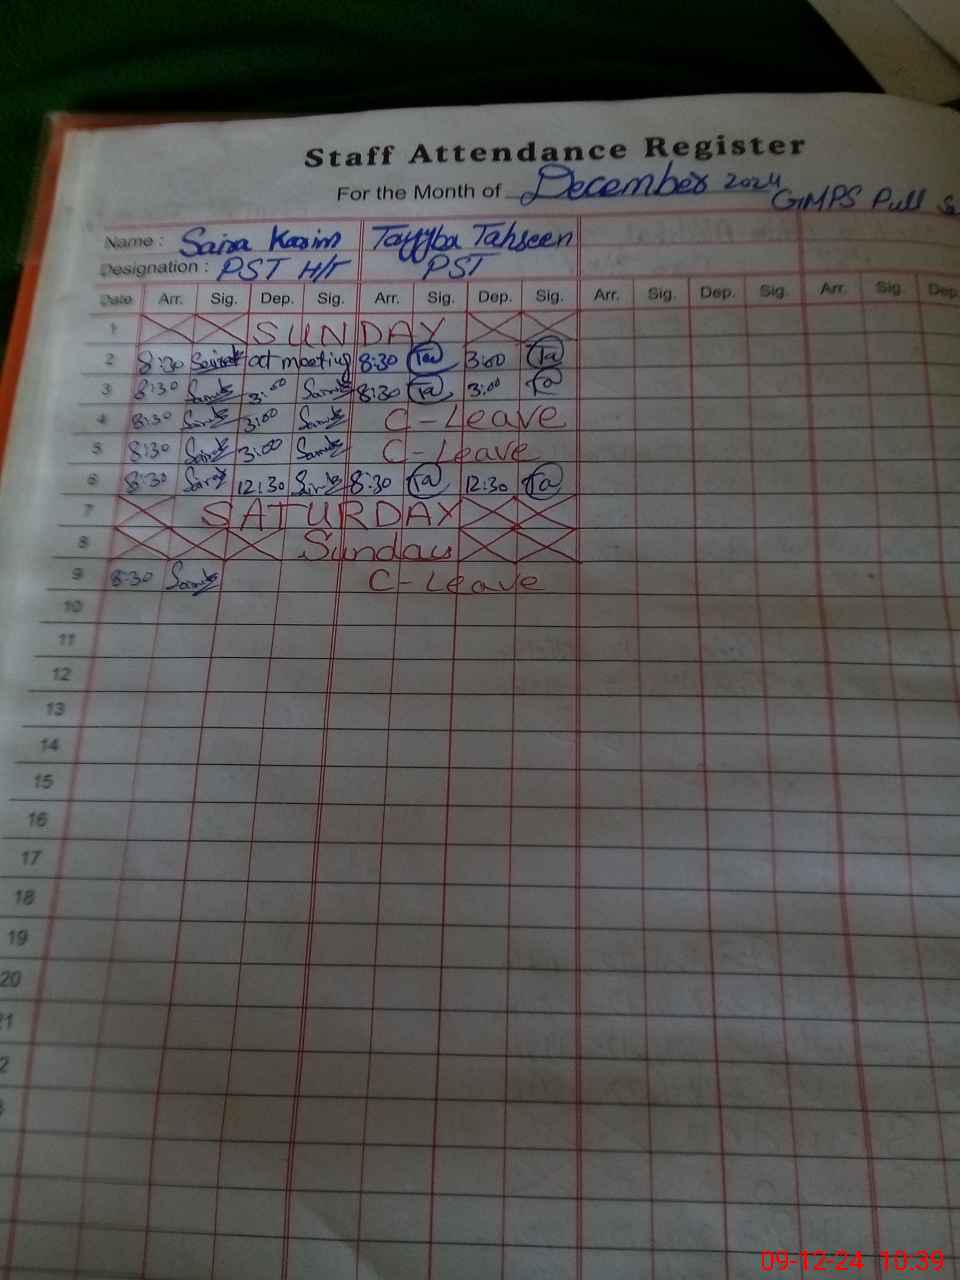 Staff Attendance Register
For the Month of December 2024
GMPS Pull
Name : Saira Kasim Tayyba Tahseen
Designation : PST H/T PST
Date Arr. Sig. Dep. Sig. Arr. Sig. Dep. Sig. Arr. Sig. Dep. Sig. Arr. Sig. Dep.
1 SUNDAY
2 8:30 at meeting 8:30 Ta 3:00 Ta
3 8:30 3:00 8:30 Ta 3:00 Ta
4 8:30 3:00 C-Leave
5 8:30 3:00 C-Leave
6 8:30 12:30 8:30 Ta 12:30 Ta
7 SATURDAY
8 Sunday
9 8:30 C-Leave
10
11
12
13
14
15
16
17
18
19
20
09-12-24 10:39